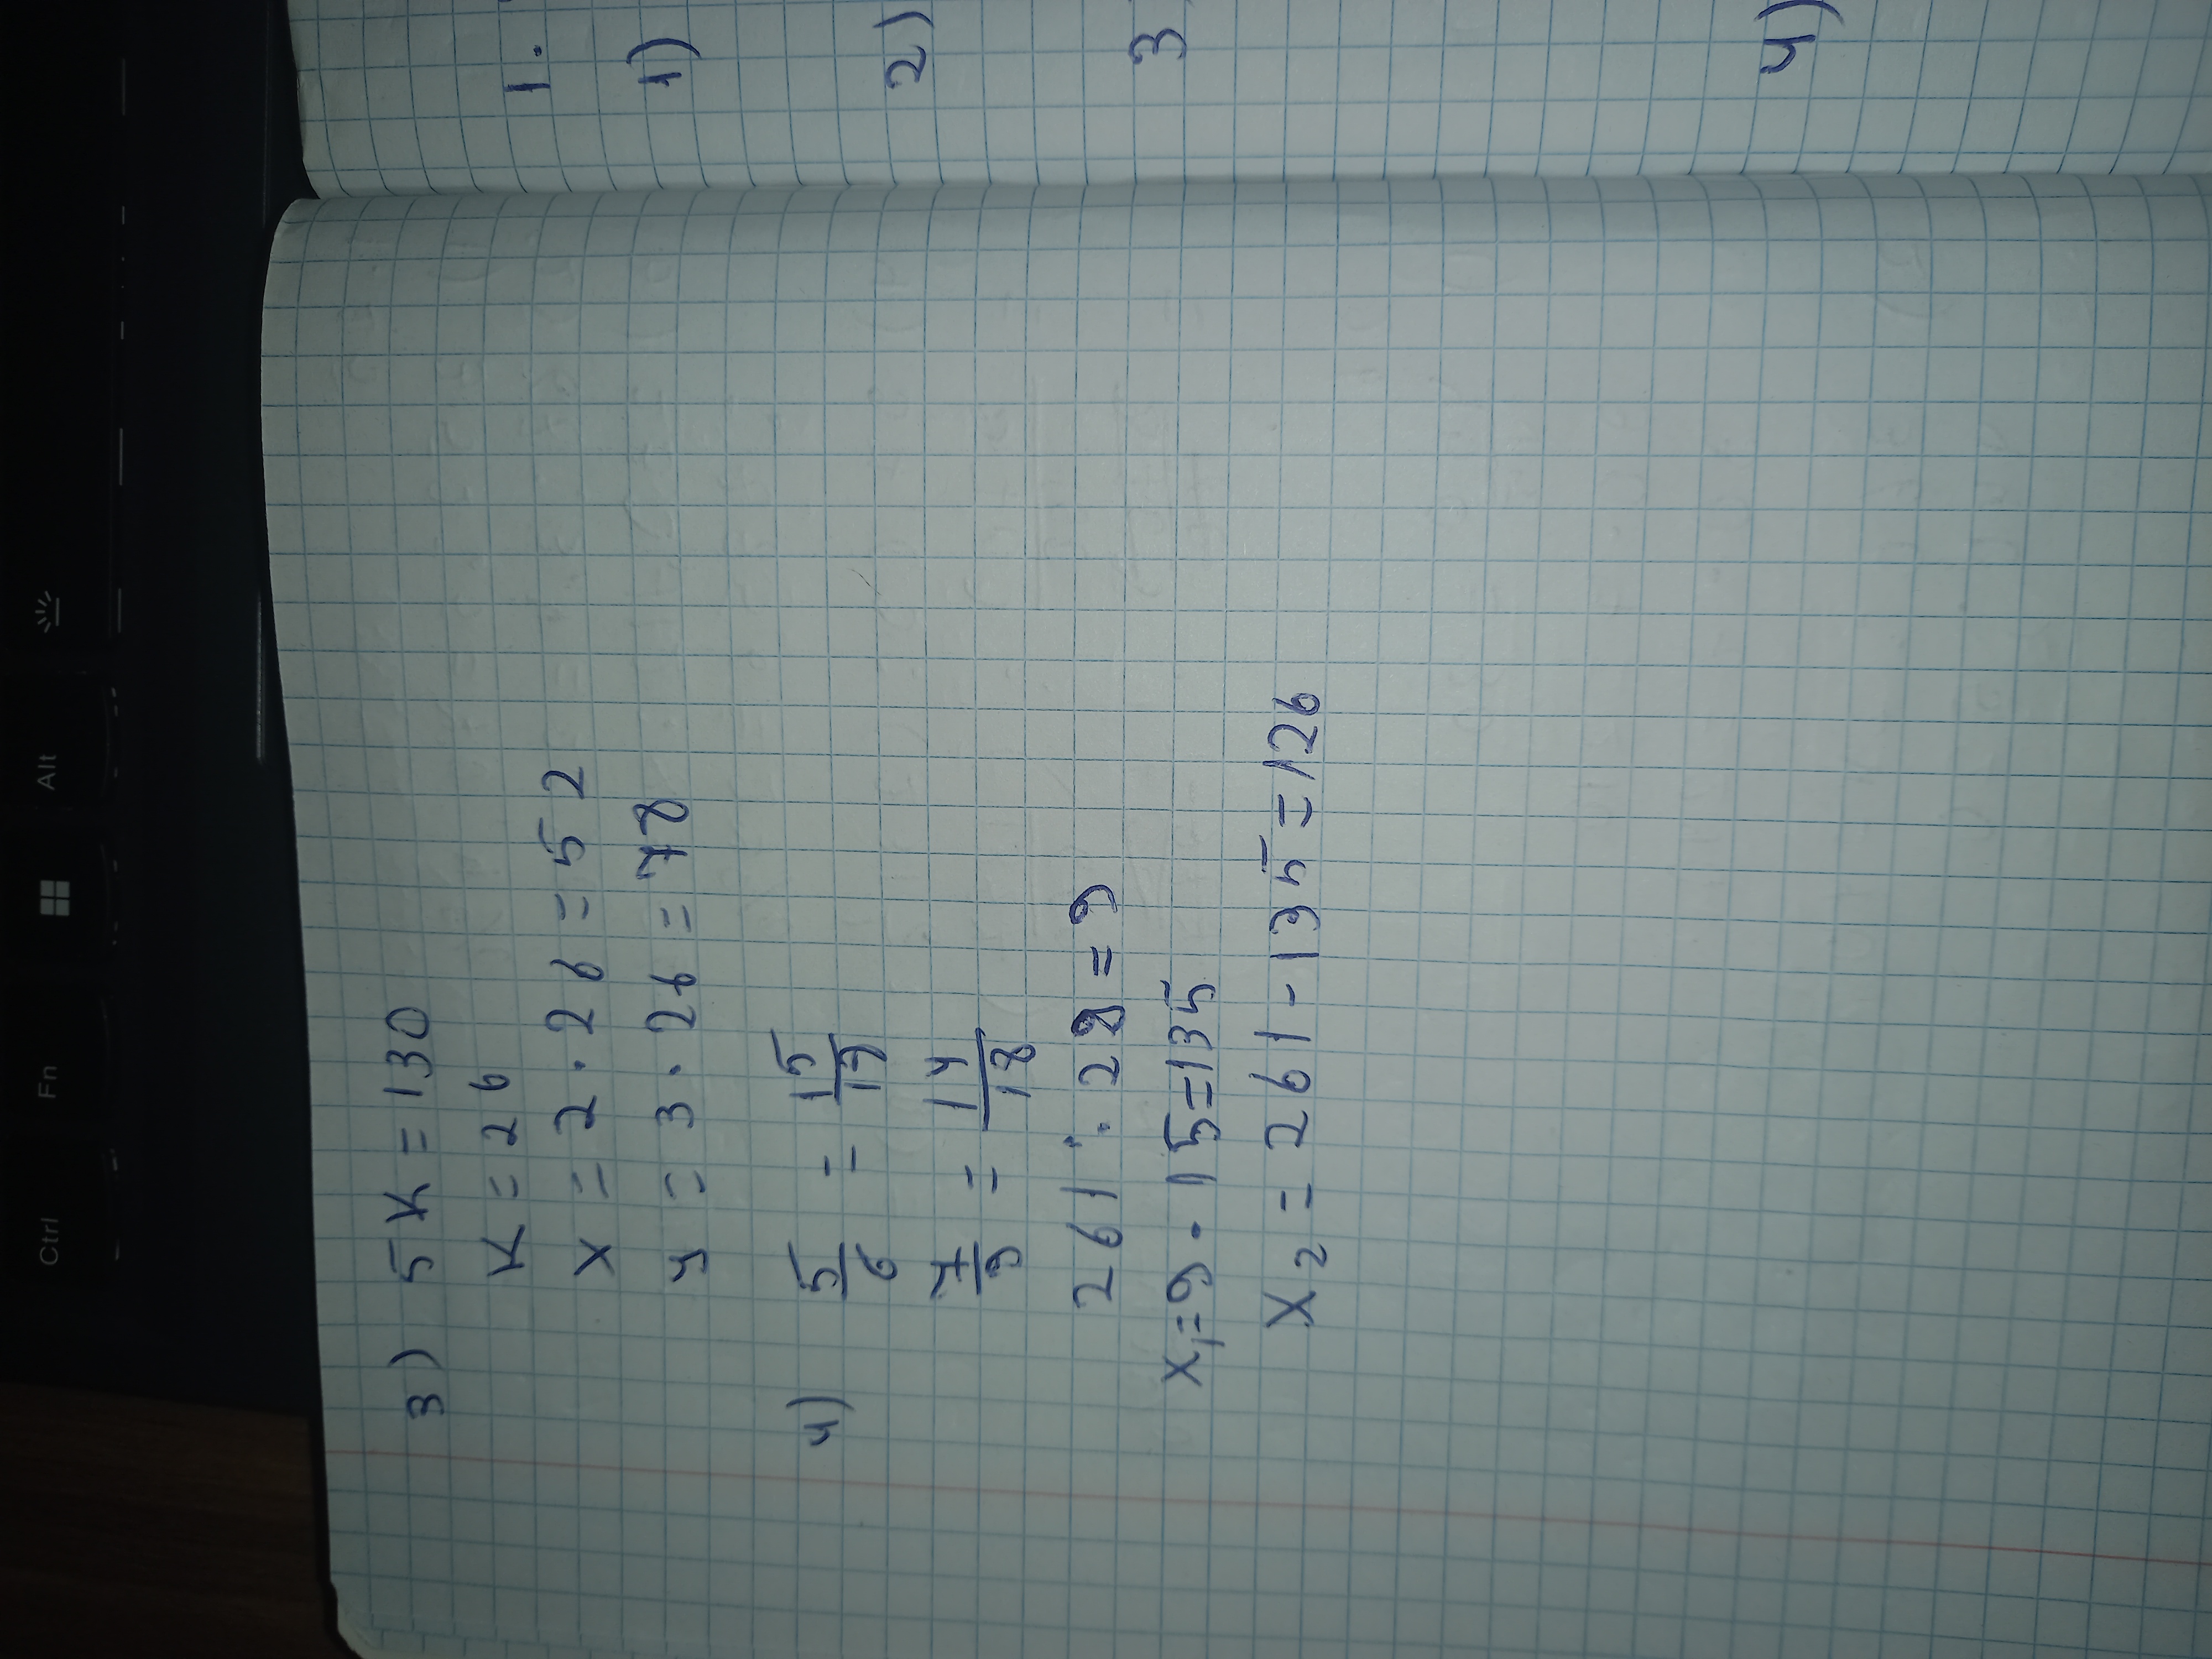 Ctrl Fn Alt
3) 5K = 130
K = 26
x = 2 · 26 = 52
y = 3 · 26 = 78
4) 5/6 = 15/
7/9 = 14/18
261 : 29 = 9
x₁ = 9 · 15 = 135
x₂ = 261 - 135 = 126
1.
1)
2)
3
4)